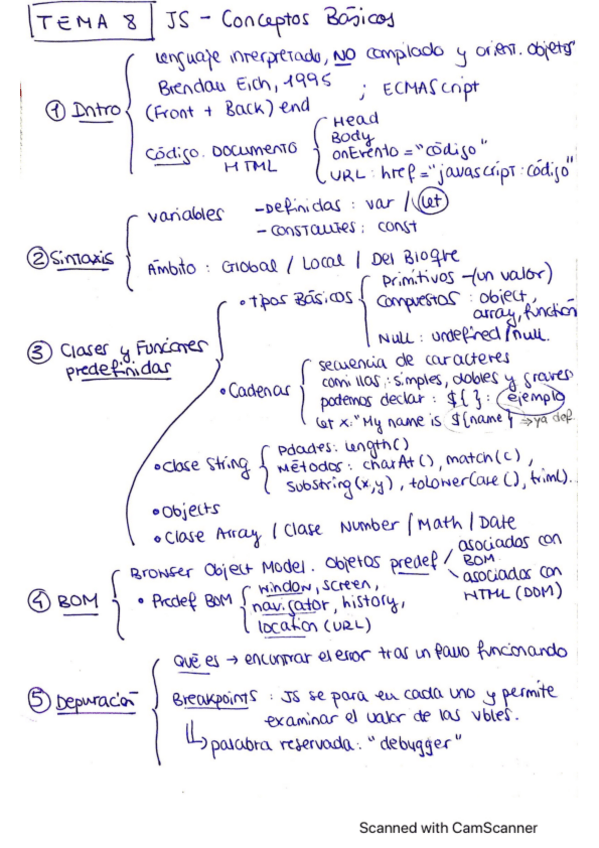 TEMA 8 JS - Conceptos Básicos
① Intro
lenguaje interpretado, NO compilado y orient. objetos
Brendan Eich, 1995 ; ECMAScript
(Front + Back) end
Código. DOCUMENTO HTML
Head
Body
onEvento = "código"
URL : href = "javascript : código"
② Sintaxis
variables - Definidas : var / let
- CONSTANTES : const
Ámbito : Global / Local / Del Bloque
③ Clases y Funciones predefinidas
• Tipos Básicos
Primitivos - (un valor)
Compuestos : object, array, function
Null : undefined / null.
• Cadenas
secuencia de caracteres
comillas : simples, dobles y graves
podemos declar : ${ } : ejemplo
let x: "My name is ${name} ⇒ ya def.
• Clase String
Pdades : length()
Métodos : charAt(), match(c),
substring(x,y), toLowerCase(), trim().
• Objects
• Clase Array / Clase Number / Math / Date
④ BOM
Browser Object Model. Objetos predef / asociados con BOM
\ asociados con HTML (DOM)
• Predef BOM
window, screen,
navigator, history,
location (URL)
⑤ Depuración
Qué es → encontrar el error tras un fallo funcionando
Breakpoints : JS se para en cada uno y permite
examinar el valor de las vbles.
↳ palabra reservada : "debugger"
Scanned with CamScanner